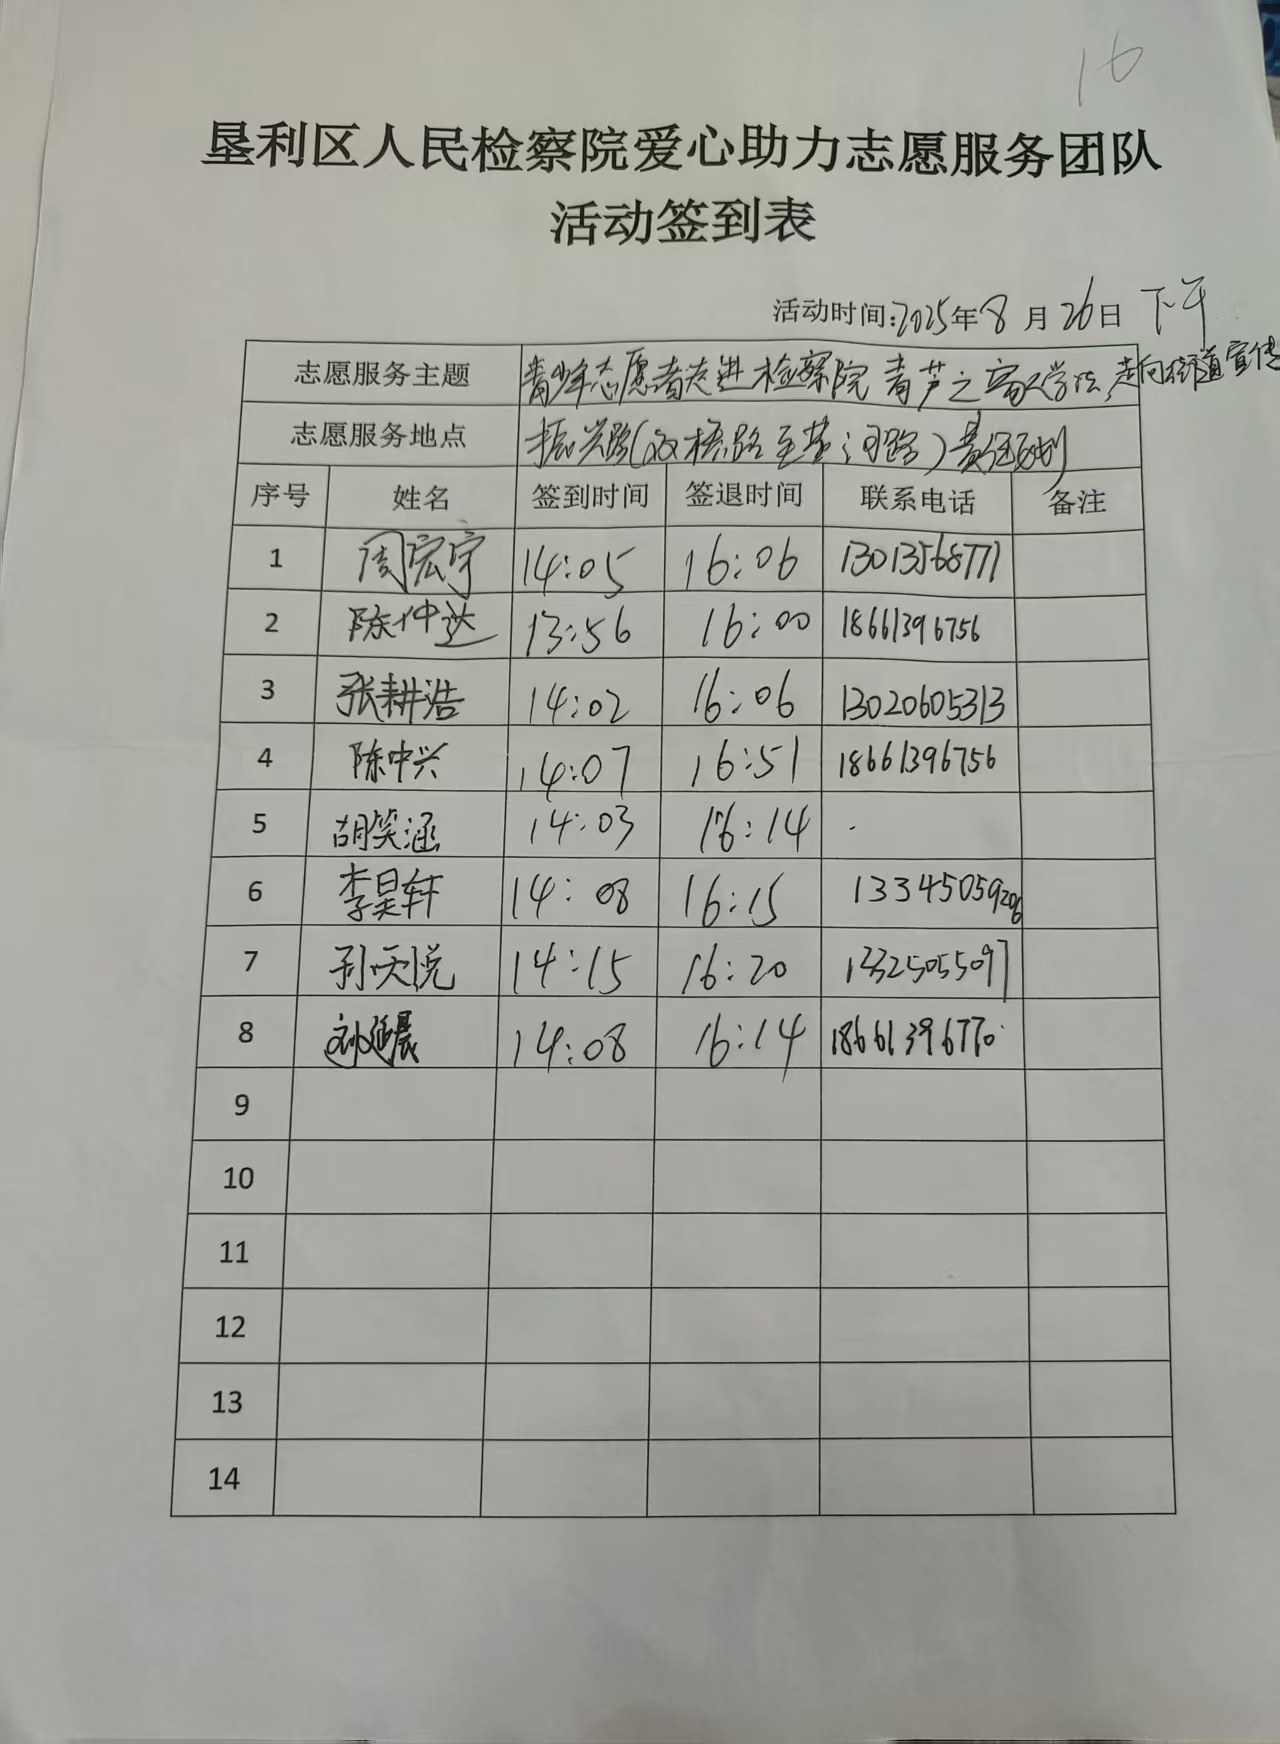 16
垦利区人民检察院爱心助力志愿服务团队
活动签到表
活动时间:2025年8月26日 下午
志愿服务主题 青少年志愿者走进检察院 青芦之家 学法,走向街道宣传
志愿服务地点 振兴路(双桥路至 河路)责任区划
序号 姓名 签到时间 签退时间 联系电话 备注
1 周宏宇 14:05 16:06 13013568771
2 陈仲达 13:56 16:00 18661396756
3 张耕浩 14:02 16:06 13020605313
4 陈中兴 14:07 16:51 18661396756
5 胡笑涵 14:03 16:14
6 李昊轩 14:08 16:15 13345059206
7 孙天悦 14:15 16:20 13325055097
8 刘延晨 14:08 16:14 18661396770
9
10
11
12
13
14